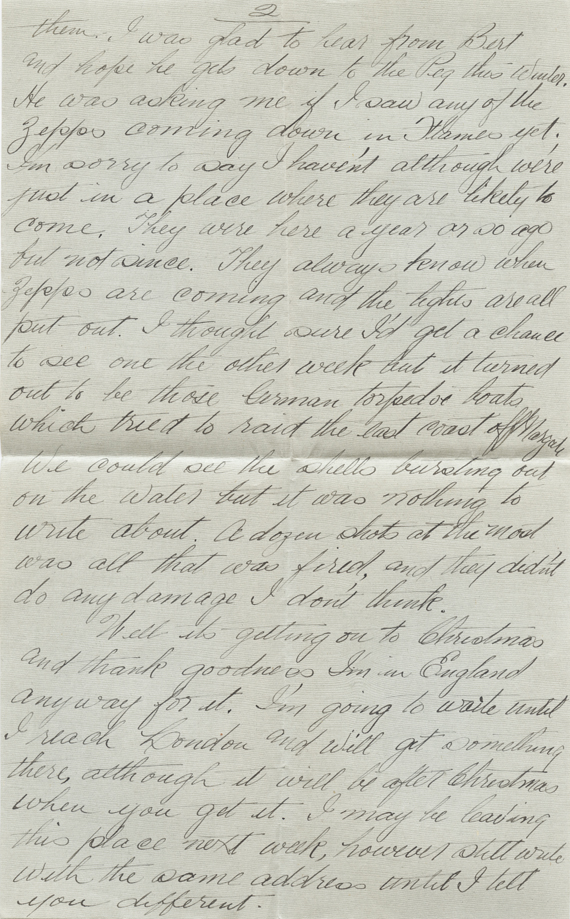 2
them. I was glad to hear from Bert
and hope he gets down to the Peg this Winter.
He was asking me if I saw any of the
Zepps coming down in Flames yet.
I'm sorry to say I haven't although we're
just in a place where they are likely to
come. They were here a year or so ago
but not since. They always know when
Zepps are coming and the lights are all
put out. I thought sure I'd get a chance
to see one the other week but it turned
out to be those German torpedoe boats
which tried to raid the east coast off Margate
We could see the shells bursting out
on the water but it was nothing to
write about. A dozen shots at the most
was all that was fired, and they didn't
do any damage I don't think.
Well its getting on to Christmas
and thank goodness I'm in England
anyway for it. I'm going to waite until
I reach London and will get something
there, although it will be after Christmas
when you get it. I may be leaving
this place next week, however still write
with the same address until I tell
you different.